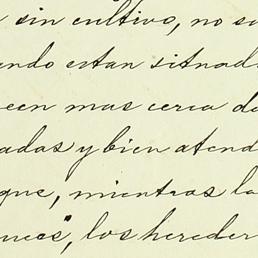 sin cultivo, no s
ndo estan situad
een mas cerca d
adas y bien atend
que, mientras la
nees", los hereder